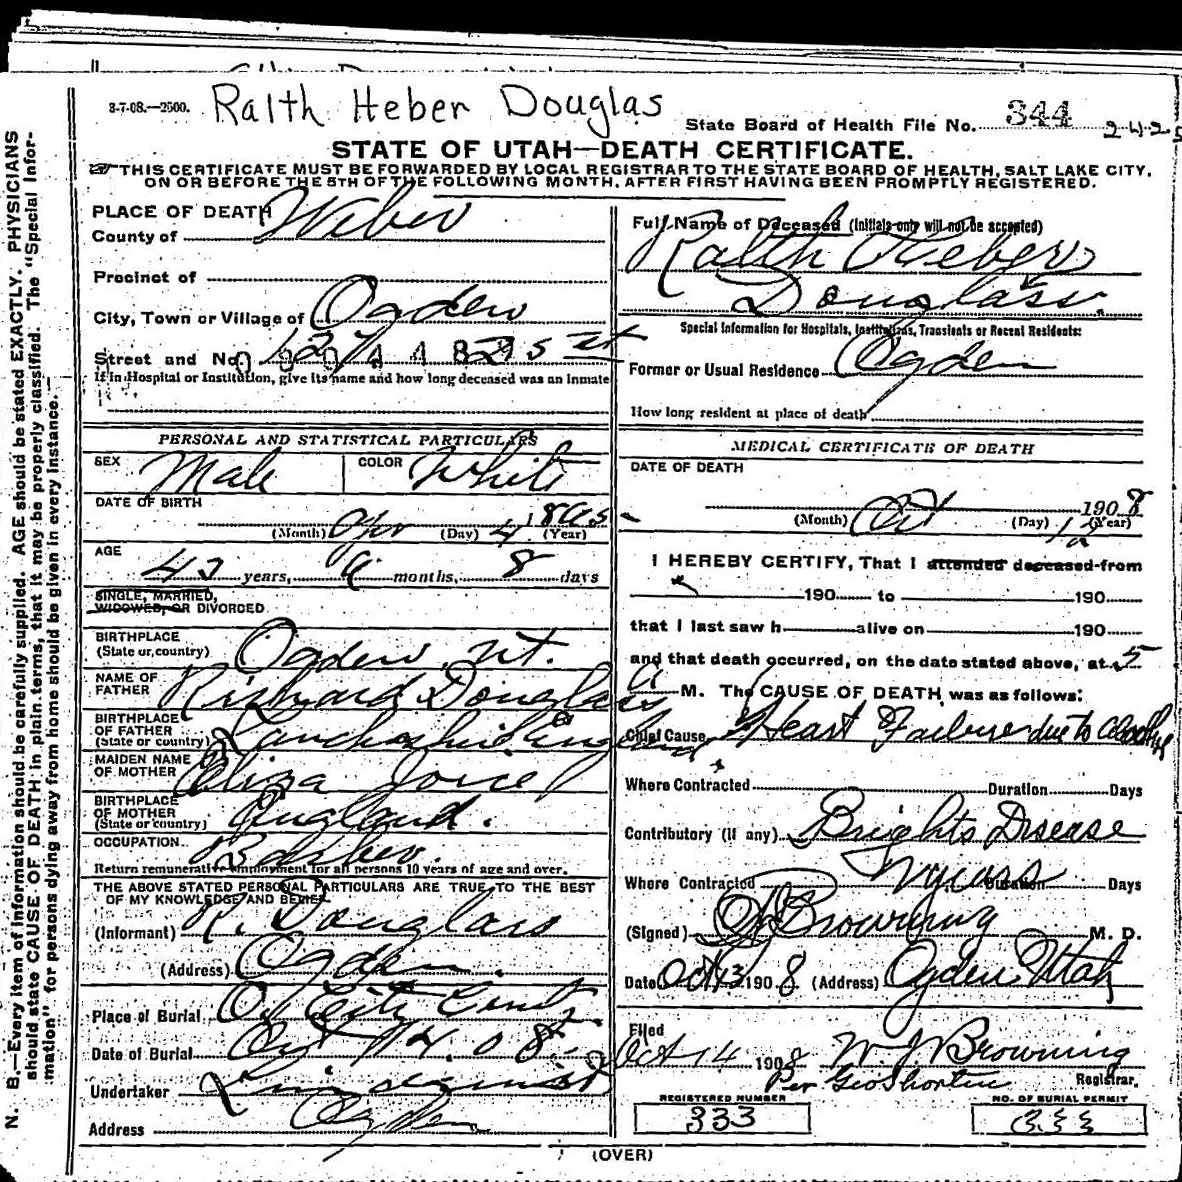 3-7-08.—2500. Ralth Heber Douglas
State Board of Health File No. 344 242
STATE OF UTAH—DEATH CERTIFICATE.
THIS CERTIFICATE MUST BE FORWARDED BY LOCAL REGISTRAR TO THE STATE BOARD OF HEALTH, SALT LAKE CITY,
ON OR BEFORE THE 5TH OF THE FOLLOWING MONTH, AFTER FIRST HAVING BEEN PROMPTLY REGISTERED.
N. B.—Every item of information should be carefully supplied. AGE should be stated EXACTLY. PHYSICIANS
should state CAUSE OF DEATH in plain terms, that it may be properly classified. The "Special Infor-
mation" for persons dying away from home should be given in every instance.
PLACE OF DEATH
County of Weber
Precinct of
City, Town or Village of Ogden
Street and No. 25 st
If in Hospital or Institution, give its name and how long deceased was an inmate
PERSONAL AND STATISTICAL PARTICULARS
SEX Male COLOR White
DATE OF BIRTH
(Month) Apr (Day) 4 (Year)
AGE
years, months, 8 days
SINGLE, MARRIED,
WIDOWED, OR DIVORCED
BIRTHPLACE
(State or country) Ogden, Ut.
NAME OF
FATHER Richard Douglass
BIRTHPLACE
OF FATHER
(State or country) England
MAIDEN NAME
OF MOTHER Eliza
BIRTHPLACE
OF MOTHER
(State or country) England.
OCCUPATION Barber.
Return remunerative employment for all persons 10 years of age and over.
THE ABOVE STATED PERSONAL PARTICULARS ARE TRUE TO THE BEST
OF MY KNOWLEDGE AND BELIEF
(Informant) R. Douglass
(Address) Ogden.
Place of Burial City
Date of Burial Oct 14. 08.
Undertaker Lindquist
Address Ogden
Full Name of Deceased (Initials only will not be accepted)
Ralth Heber
Douglass.
Special Information for Hospitals, Institutions, Transients or Recent Residents:
Former or Usual Residence Ogden
How long resident at place of death
MEDICAL CERTIFICATE OF DEATH
DATE OF DEATH
1908
(Month) Oct (Day) 12 (Year)
I HEREBY CERTIFY, That I attended deceased from
190 to 190
that I last saw h alive on 190
and that death occurred, on the date stated above, at 5
A M. The CAUSE OF DEATH was as follows:
Chief Cause Heart Failure due to
Where Contracted Duration Days
Contributory (if any) Brights Disease
Where Contracted Duration Days
(Signed) Browning M. D.
Date Oct 13 1908 (Address) Ogden Utah
Filed
Oct 14 1908 W. J. Browning
Per Geo Shorten Registrar.
REGISTERED NUMBER
333
NO. OF BURIAL PERMIT
333
(OVER)